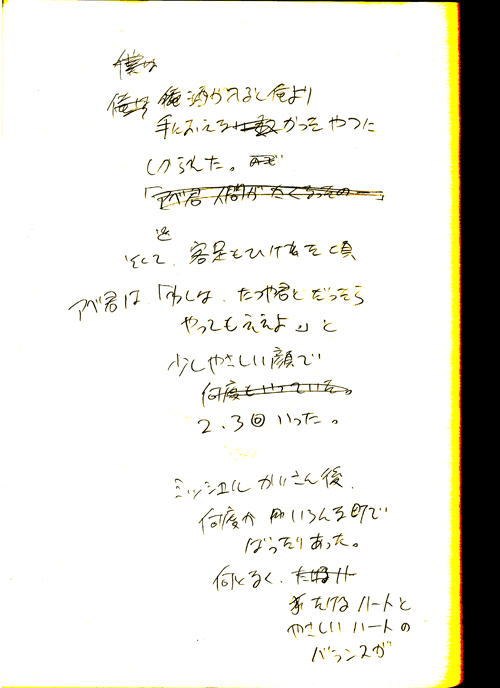 僕は
俺は 俺 酒が入ると俺より
手におえる かったやつに
しかられた。
「アベ君 人間が たくるっその ー」
そして、客足もひけた頃
アベ君は、「わしは、たつや君とだったら
やってもええよ。」と
少しやさしい顔で
何度もいっていた。
2、3回 いった。
ミッシェル かいさん後、
何度か いろんな町で
ばったりあった。
何となく、
ハートと
やさしいハートの
バランスが